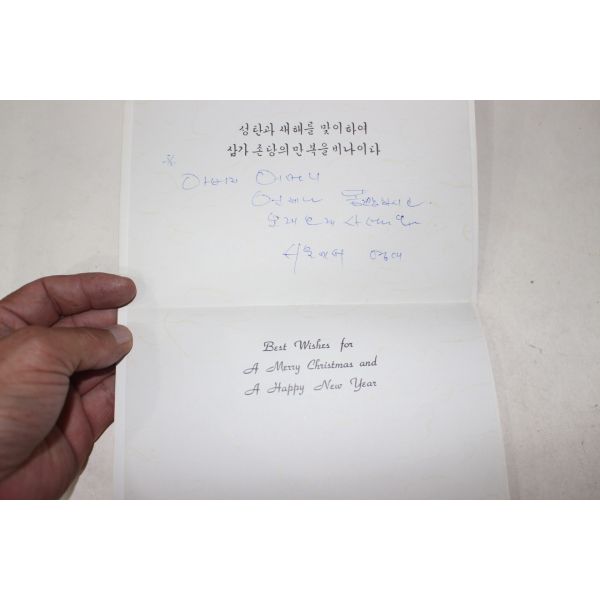 성탄과 새해를 맞이하여
삼가 존당의 만복을 비나이다
아버지 어머니
언제나
오래 오래
서울에서
Best Wishes for
A Merry Christmas and
A Happy New Year